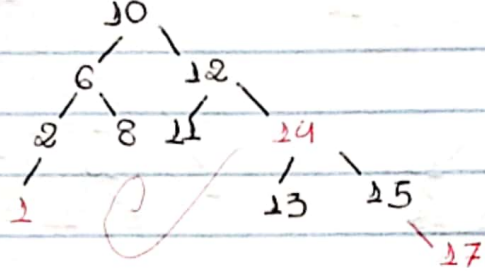 10
6 12
2 8 11 14
1 13 15
17